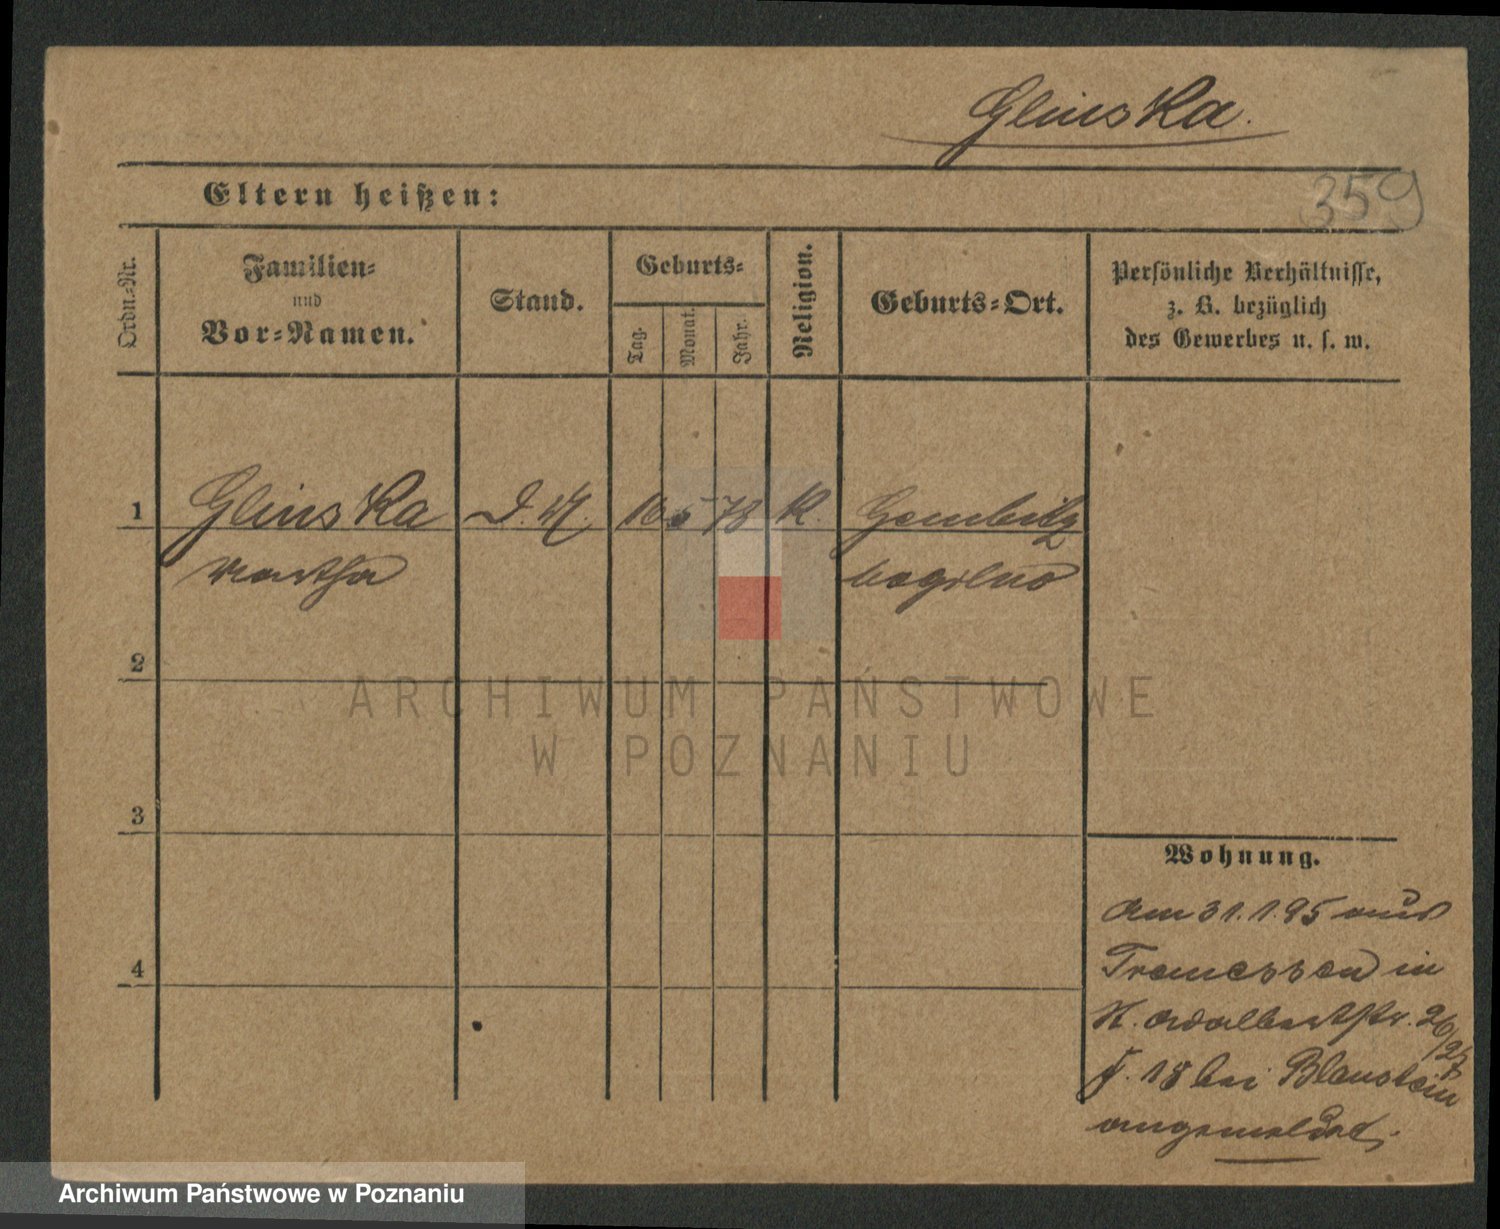 Glinska.
359
Eltern heißen:
Ordn.-Nr.
Familien-
und
Vor-Namen.
Stand.
Geburts-
Tag.
Monat.
Jahr.
Religion.
Geburts-Ort.
Persönliche Verhältnisse,
z. B. bezüglich
des Gewerbes u. s. w.
1
Glinska
D. M.
16
5
78
K.
Gembitz
Martha
Mogilno
2
ARCHIWUM PAŃSTWOWE
W POZNANIU
3
Wohnung.
Am 31.1.95 aus
Tremessen in
St. Adalbertstr. 26/27
I. 18 bei Blaustein
angemeldet.
4
Archiwum Państwowe w Poznaniu